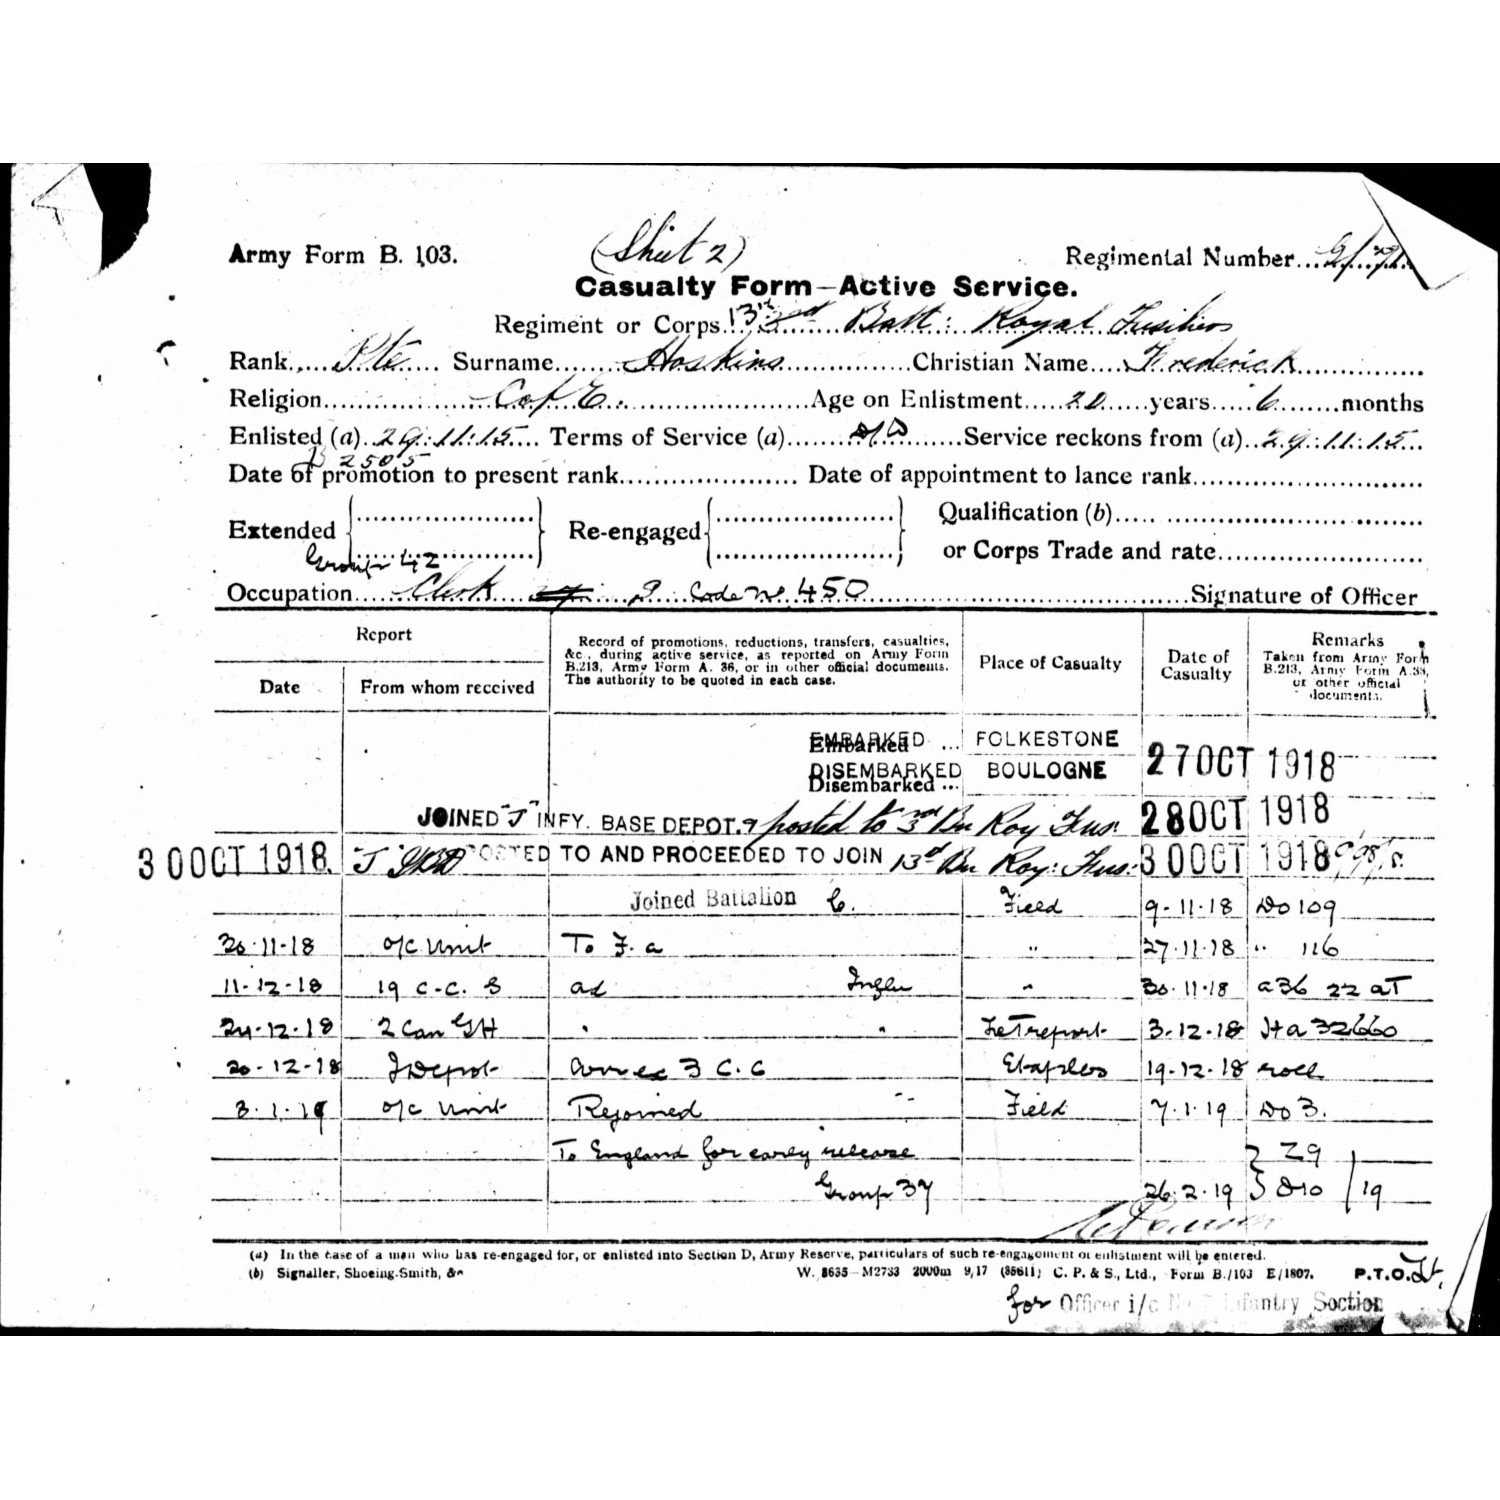 (Sheet 2)
Army Form B. 103. Regimental Number
Casualty Form—Active Service.
Regiment or Corps 13th 3rd Batt: Royal Fusiliers
Rank Pte Surname Hoskins Christian Name Frederick
Religion C of E. Age on Enlistment 20 years 6 months
Enlisted (a) 29.11.15 Terms of Service (a) Service reckons from (a) 29.11.15
2505
Date of promotion to present rank Date of appointment to lance rank
Extended Re-engaged Qualification (b)
or Corps Trade and rate
Group 42
Occupation Clerk Code No 450 Signature of Officer
Report
Date From whom received Record of promotions, reductions, transfers, casualties, &c., during active service, as reported on Army Form B.213, Army Form A. 36, or in other official documents. The authority to be quoted in each case. Place of Casualty Date of Casualty Remarks Taken from Army Form B.213, Army Form A.36, or other official documents.
EMBARKED Embarked ... FOLKESTONE 27 OCT 1918
DISEMBARKED Disembarked ... BOULOGNE
JOINED "J" INFY. BASE DEPOT. & posted to 3rd Bn Roy Fus. 28 OCT 1918
30 OCT 1918. J IBD POSTED TO AND PROCEEDED TO JOIN 13th Bn Roy: Fus: 30 OCT 1918
Joined Battalion C. Field 9-11-18 DO 109
30-11-18 O/C Unit To F. a " 27-11-18 " 116
11-12-18 19 C.C.S ad Influ " 30-11-18 a36 22 aT
24-12-18 2 Can GH " " Le Treport 3-12-18 Ha 32660
20-12-18 J Depot 3 C.C Etaples 19-12-18 roll
8.1.19 O/C Unit Rejoined " Field 7.1.19 DO 3.
To England for early release Z9
Group 37 26.2.19 D10 19
(a) In the case of a man who has re-engaged for, or enlisted into Section D, Army Reserve, particulars of such re-engagement or enlistment will be entered.
(b) Signaller, Shoeing-Smith, &c W. 8635—M2733 2000m 9/17 (35611) C. P. & S., Ltd., Form B./103 E/1807. P.T.O.
for Officer i/c Infantry Section